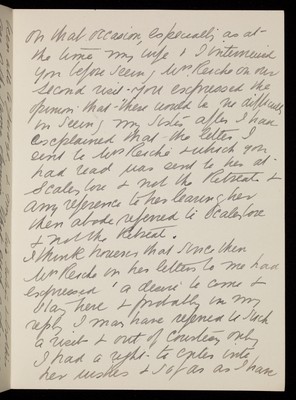 on that occasion, especially as at
the time my wife & I interviewed
you before seeing Mrs Reiche on our
second visit. You expressed the
opinion that there would be no difficulty
in seeing my sister after I had
explained that the letter I
sent to Mrs Reiche & which you
had read was sent to her at
Scalesfore & not the Retreat &
any reference to her leaving her
then abode referred to Scalesfore
& not the Retreat.
I think however that since then
Mrs Reiche in her letters to me had
expressed a desire to come &
stay here & probably in my
reply I may have referred to such
a visit & out of courtesy only
I had a right to enter into
her wishes & so far as I have